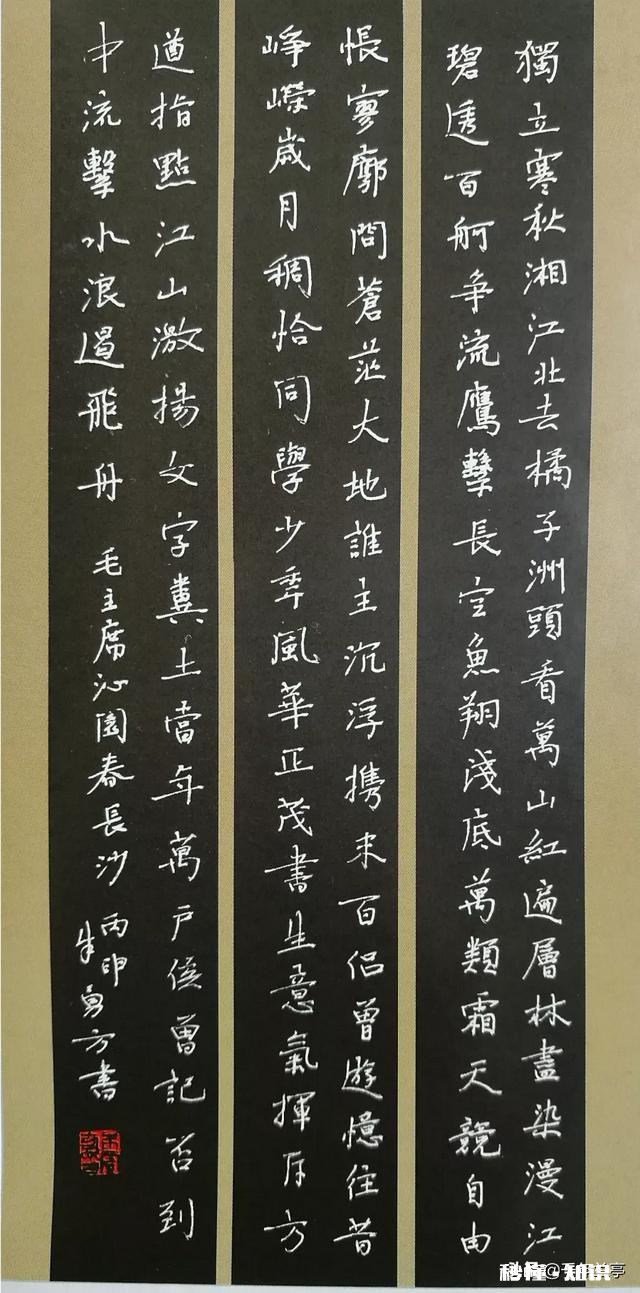 獨立寒秋湘江北去橘子洲頭看萬山紅遍層林盡染漫江
碧透百舸争流鷹擊長空魚翔淺底萬類霜天競自由
悵寥廓問蒼茫大地誰主沉浮携来百侣曾遊憶往昔
崢嶸歲月稠恰同學少年風華正茂書生意氣揮斥方
遒指點江山激揚文字糞土當年萬户侯曾記否到
中流擊水浪遏飛舟 毛主席沁園春長沙 丙
朱勇方書
秒懂·知识